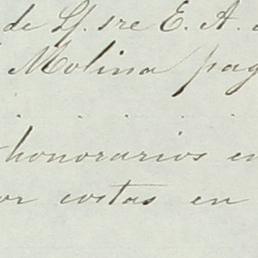 de Lf. sre E. A.
Molina pag
honorarios en
or costas en